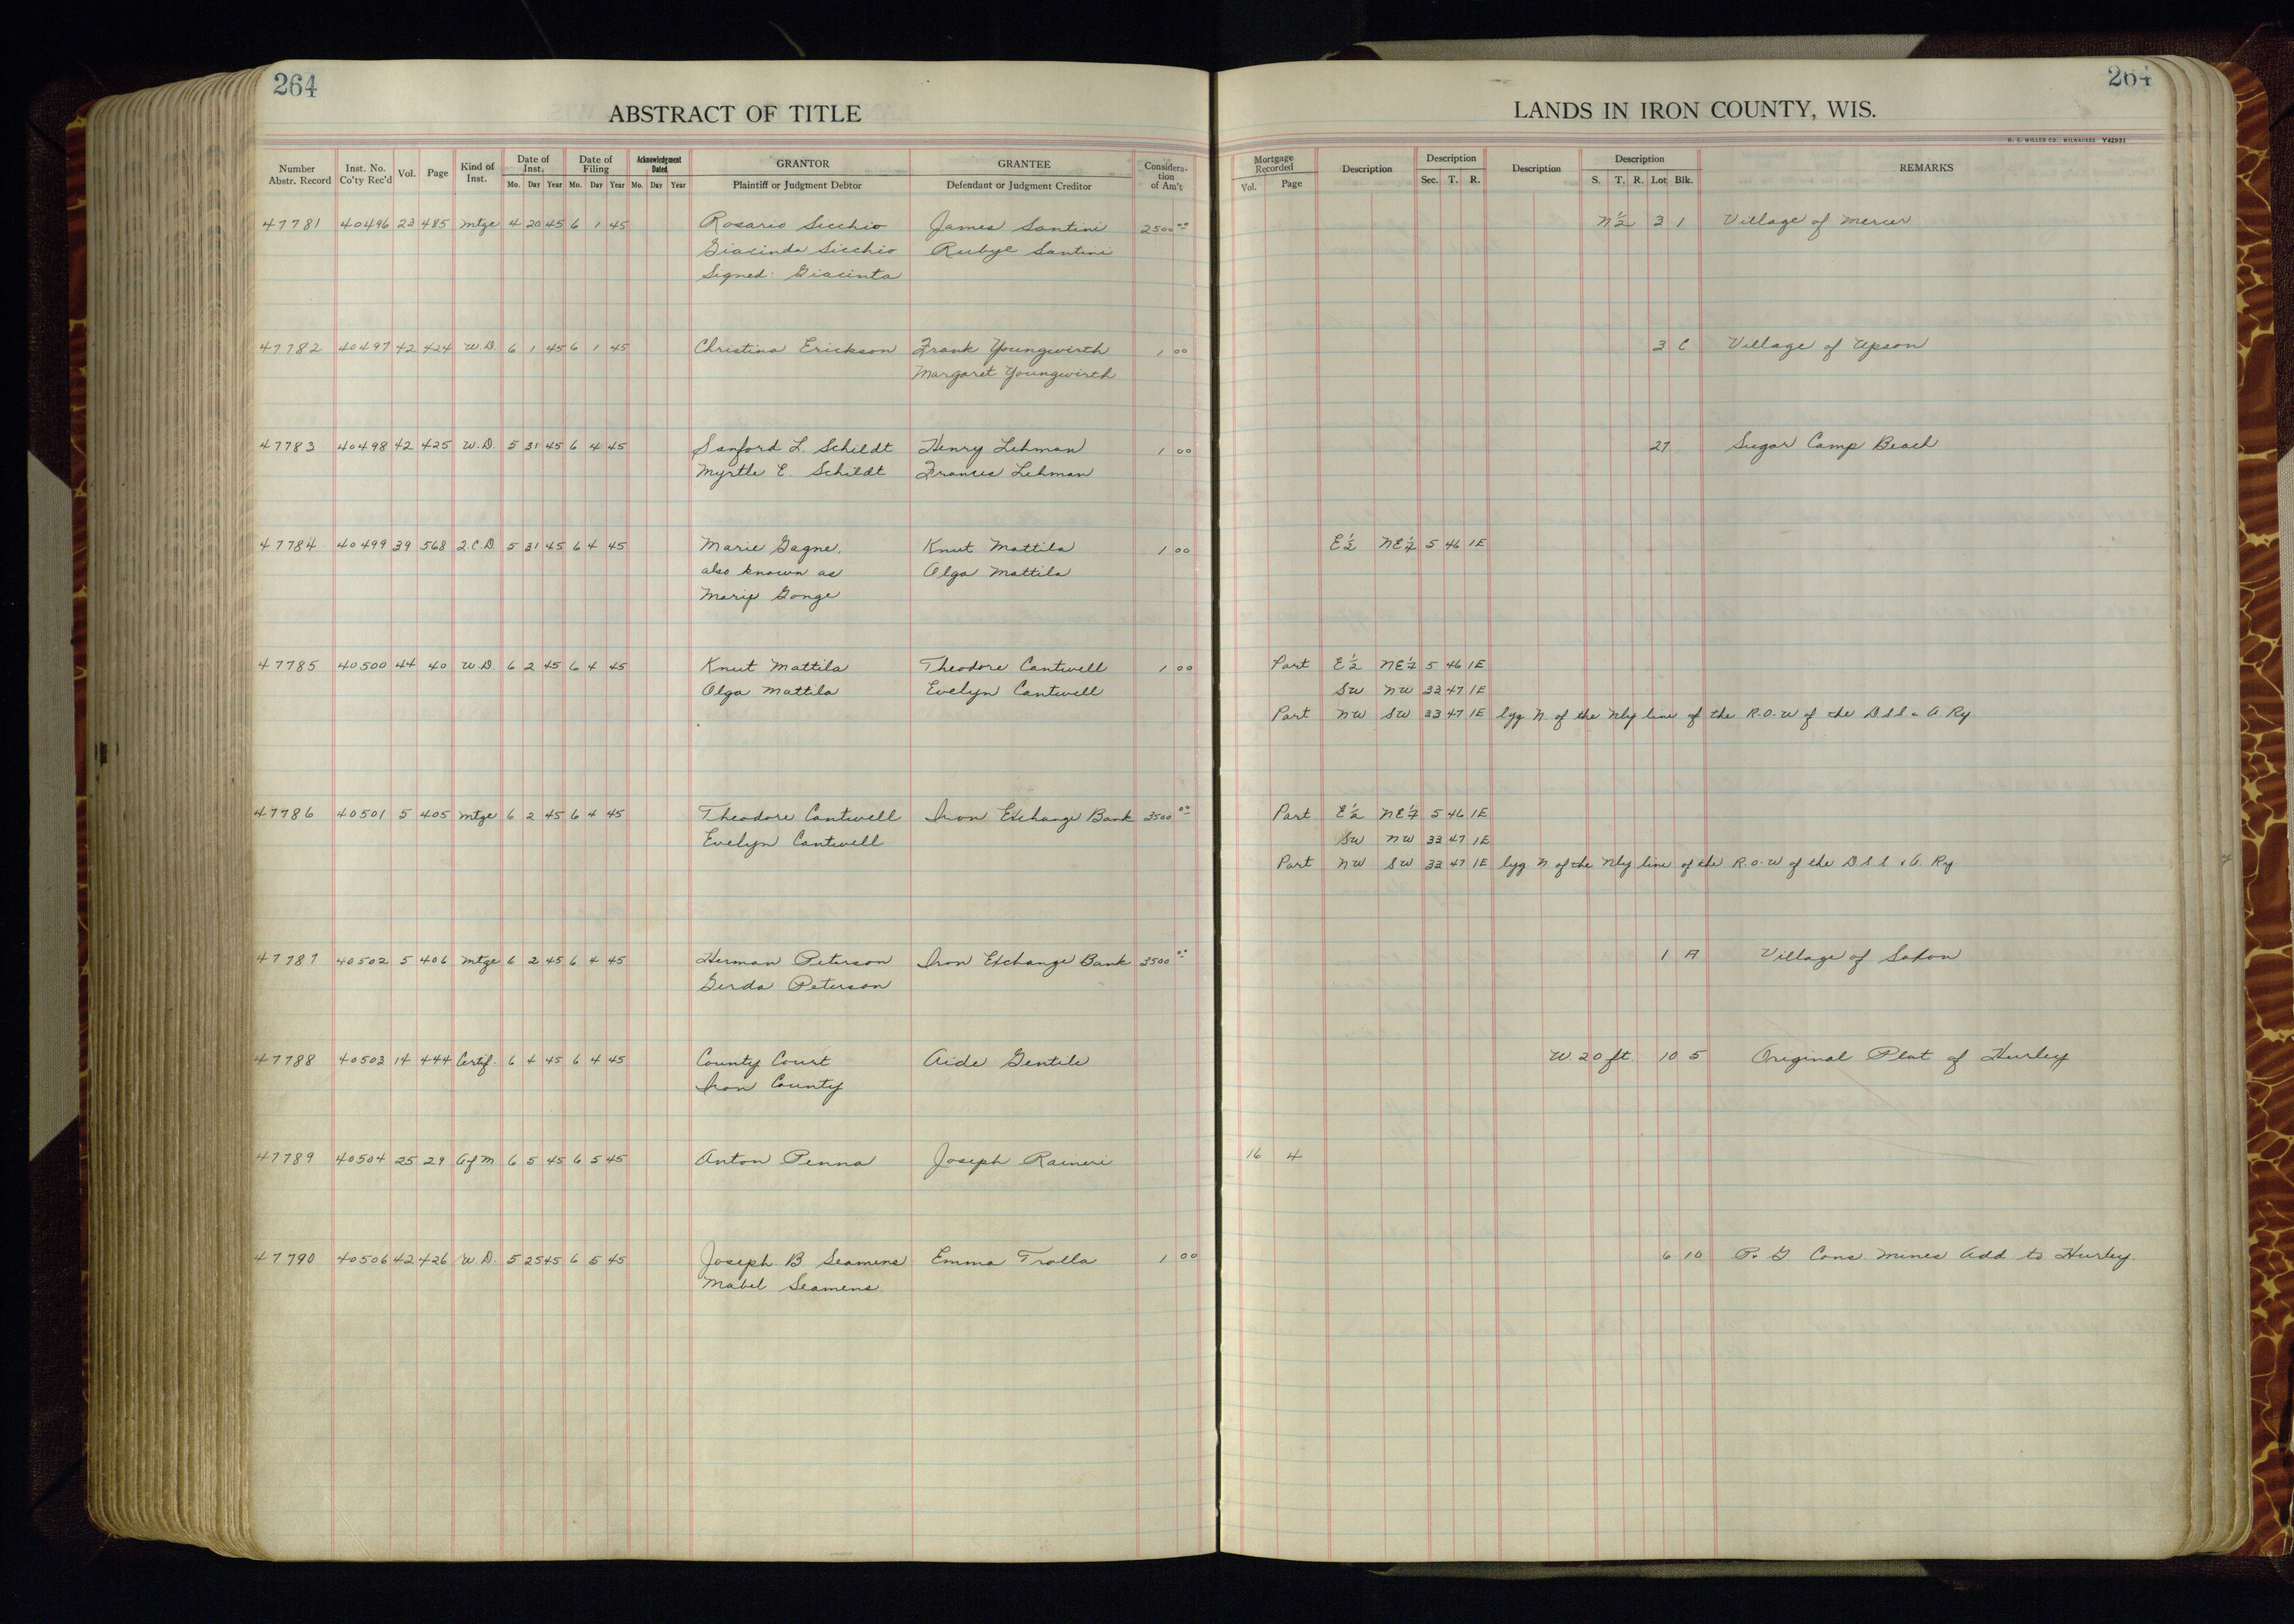 264
264
ABSTRACT OF TITLE
LANDS IN IRON COUNTY, WIS.
H. C. MILLER CO., MILWAUKEE Y42931
Number Abstr. Record Inst. No. Co'ty Rec'd Vol. Page Kind of Inst. Date of Inst. Mo. Day Year Date of Filing Mo. Day Year Acknowledgment Dated Mo. Day Year GRANTOR Plaintiff or Judgment Debtor GRANTEE Defendant or Judgment Creditor Consideration of Am't Mortgage Recorded Vol. Page Description Description Sec. T. R. Description Description S. T. R. Lot Blk. REMARKS
47781 40496 23 485 Mtge 4 20 45 6 1 45 Rosario Sicchio James Santini 2500 00 N 1/2 3 1 Village of Mercer
Giacinda Sicchio Rubye Santini
Signed: Giacinta
47782 40497 42 424 W.D. 6 1 45 6 1 45 Christina Erickson Frank Youngwirth 1 00 3 C Village of Upson
Margaret Youngwirth
47783 40498 42 425 W.D. 5 31 45 6 4 45 Sanford L. Schildt Henry Lehman 1 00 27 Sugar Camp Beach
Myrtle E. Schildt Frances Lehman
47784 40499 39 568 Q.C.D. 5 31 45 6 4 45 Marie Gagne, Knut Mattila 1 00 E 1/2 NE 1/4 5 46 1E
also known as Olga Mattila
Marip Gonge
47785 40500 44 40 W.D. 6 2 45 6 4 45 Knut Mattila Theodore Cantwell 1 00 Part E 1/2 NE 1/4 5 46 1E
Olga Mattila Evelyn Cantwell SW NW 33 47 1E
Part NW SW 33 47 1E lyg N. of the Nly line of the R.O.W of the D S S & A Ry.
47786 40501 5 405 Mtge 6 2 45 6 4 45 Theodore Cantwell Iron Exchange Bank 3500 00 Part E 1/2 NE 1/4 5 46 1E
Evelyn Cantwell SW NW 33 47 1E
Part NW SW 33 47 1E lyg N of the Nly line of the R.O.W of the D S S & A Ry
47787 40502 5 406 Mtge 6 2 45 6 4 45 Herman Peterson Iron Exchange Bank 3500 00 1 A Village of Saxon
Gerda Peterson
47788 40503 14 444 Certif. 6 4 45 6 4 45 County Court Aide Gentile W. 20 ft. 10 5 Original Plat of Hurley
Iron County
47789 40504 25 29 A of M 6 5 45 6 5 45 Anton Penna Joseph Raineri 16 4
47790 40506 42 426 W.D. 5 25 45 6 5 45 Joseph B Seamens Emma Tralla 1 00 6 10 P. G. Cons. Mines Add to Hurley.
Mabel Seamens.